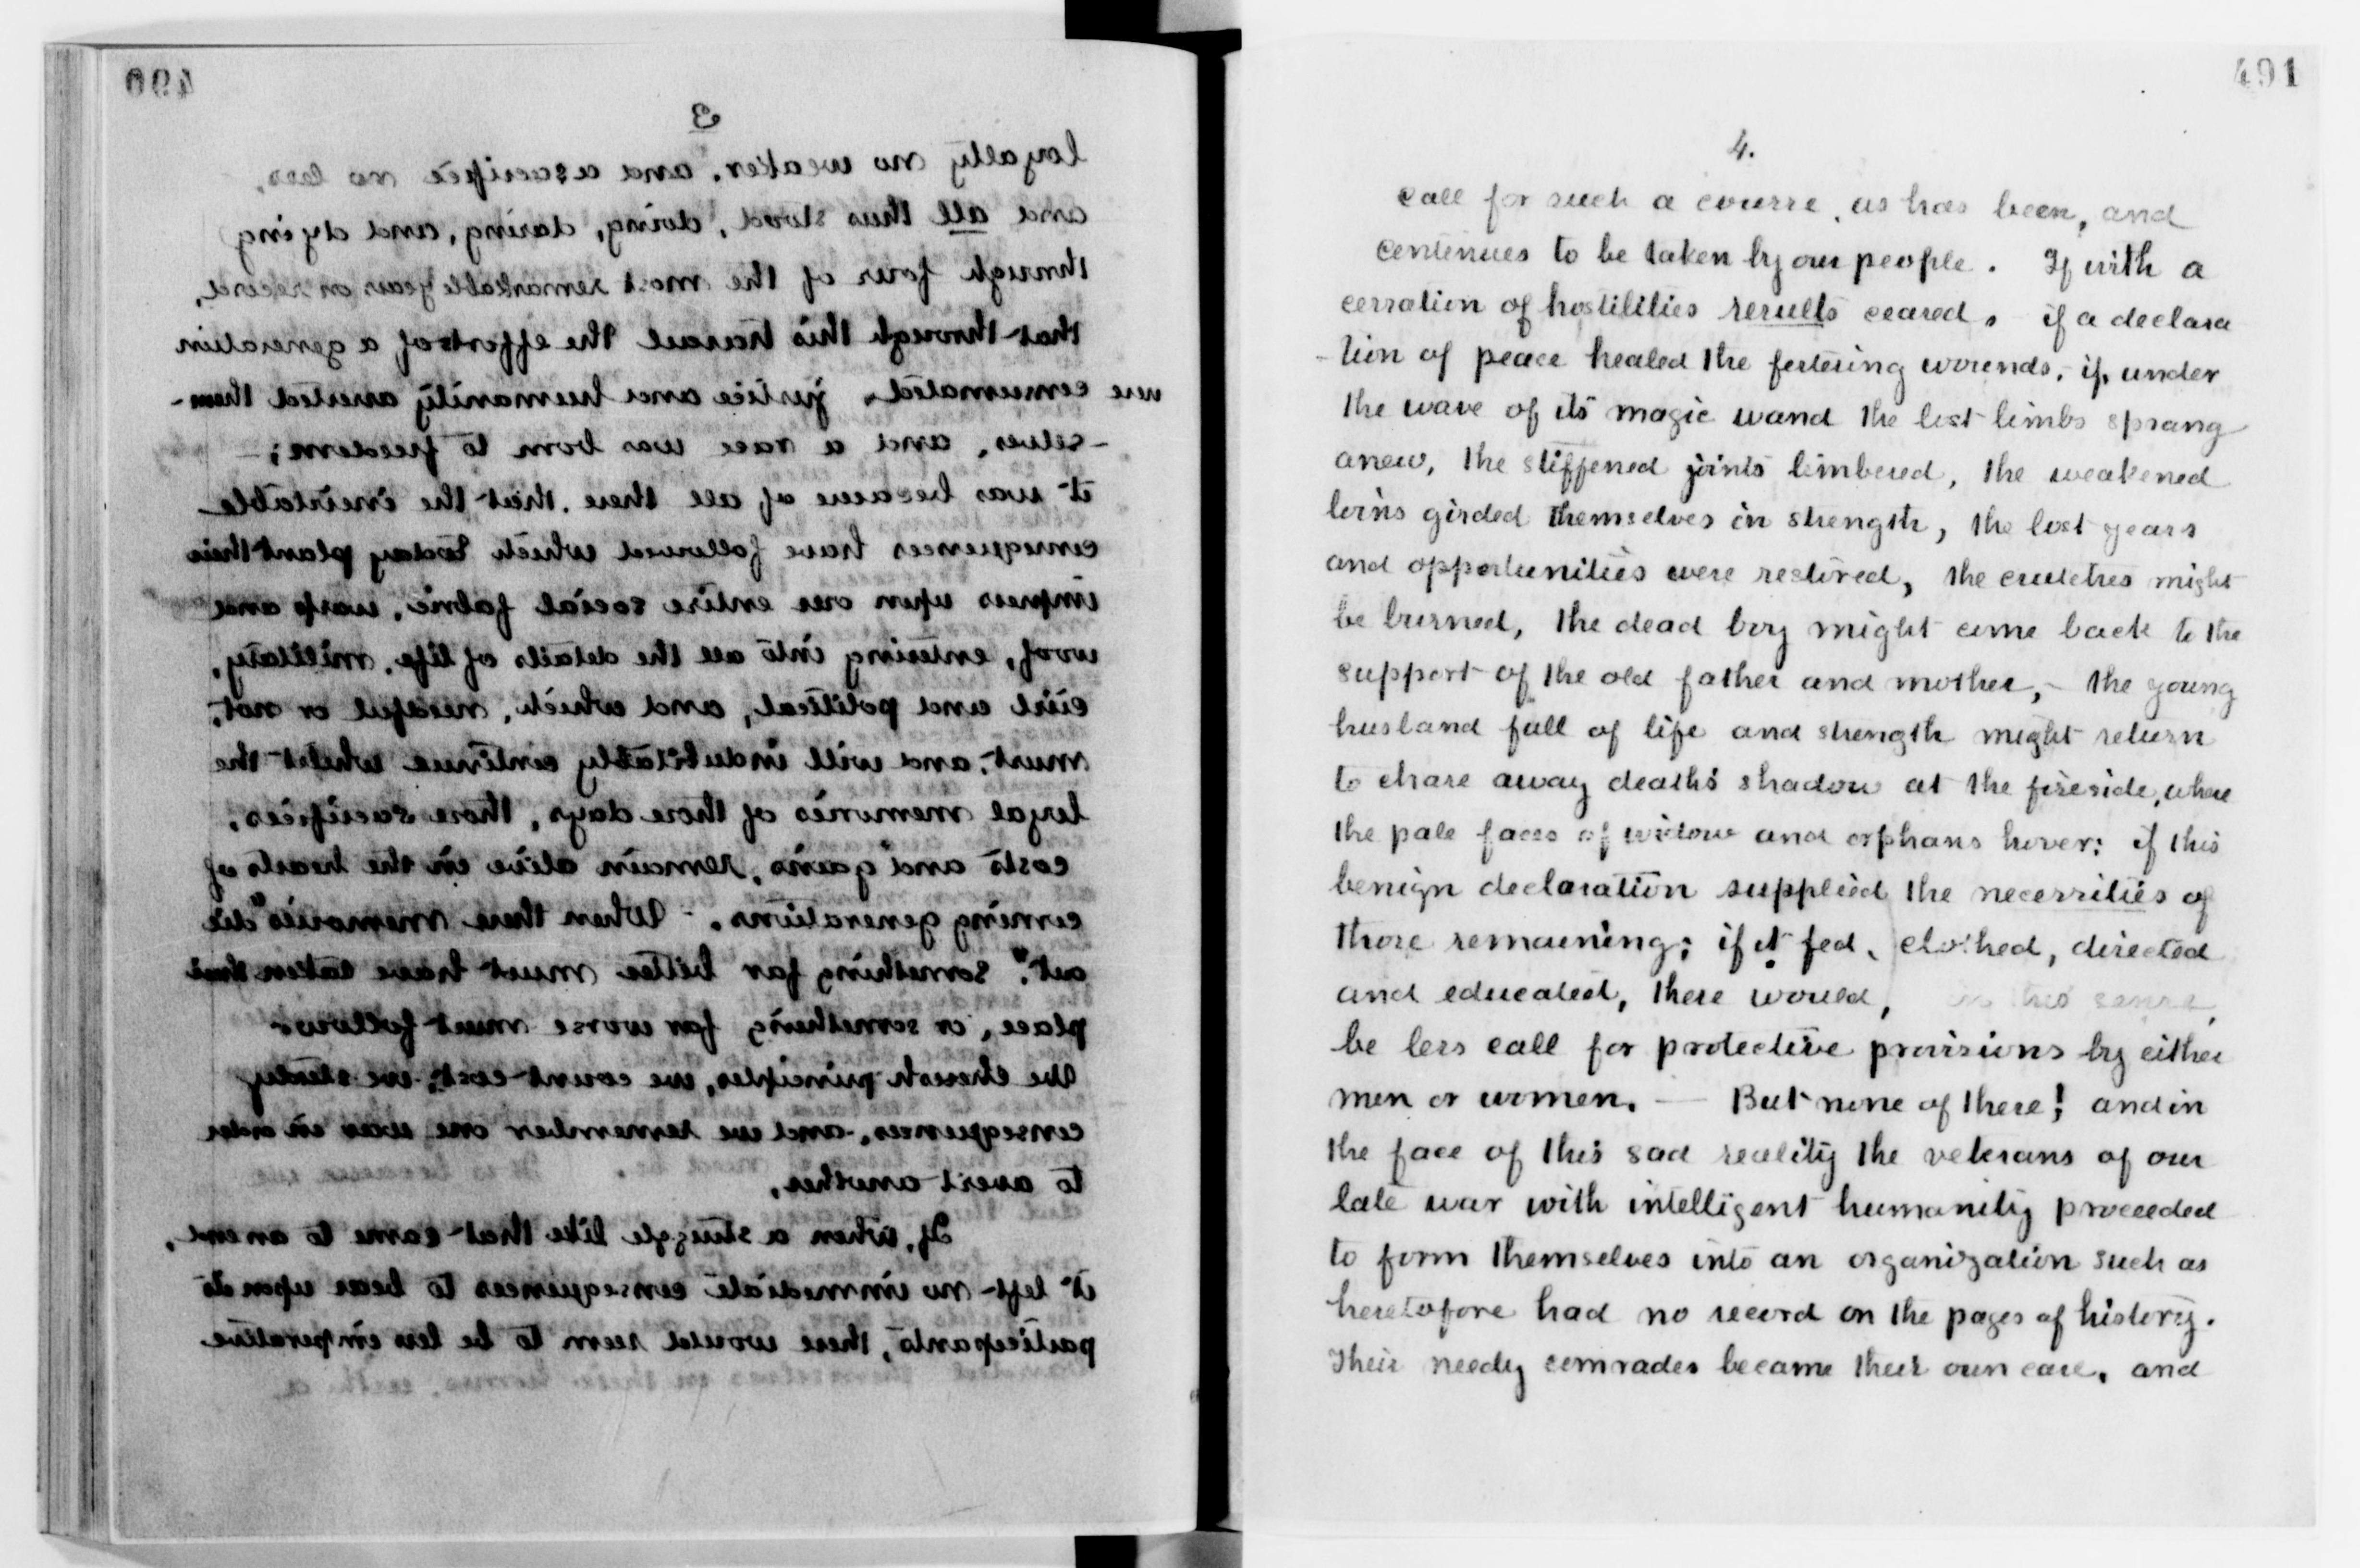 490
3
loyalty no weaker, and a sacrifice no less,
and all thus stood, doing, daring, and dying
through four of the most remarkable years on record,
that through this travail the efforts of a generation
were consumated, justice and humanity asserted them-
-selves, and a race was born to freedom; -
it was because of all these that the inevitable
consequences have followed which today plant their
impress upon our entire social fabric, warp and
woof, entering into all the details of life, military,
civil and political, and which, needful or not,
must, and will indubitably continue whilst the
loyal memories of those days, those sacrifices,
costs and gains, remain alive in the hearts of
coming generations. - When these memories "die
out", something far better must have taken their
place, or something far worse must follow
We cherish principles, we count cost, we study
consequences, and we remember one war in order
to avert another.
If, when a struggle like that came to an end,
it left no immediate consequences to bear upon its
participants, there would seem to be less imperative
491
4.
call for such a course, as has been, and
continues to be taken by our people. If with a
cessation of hostilities results ceased, if a declara
-tion of peace healed the festering wounds, if, under
the wave of its magic wand the lost limbs sprang
anew, the stiffened joints limbered, the weakened
loins girded themselves in strength, the lost years
and opportunities were restored, the crutches might
be burned, the dead boy might come back to the
support of the old father and mother, - the young
husband full of life and strength might return
to chase away deaths shadow at the fireside, where
the pale faces of widow and orphans hover; if this
benign declaration supplied the necessities of
those remaining; if it fed, clothed, directed
and educated, there would, in this sense,
be less call for protective provisions by either
men or women. — But none of these! and in
the face of this sad reality the veterans of our
late war with intelligent humanity proceeded
to form themselves into an organization such as
heretofore had no record on the pages of history.
Their needy comrades became their own care, and